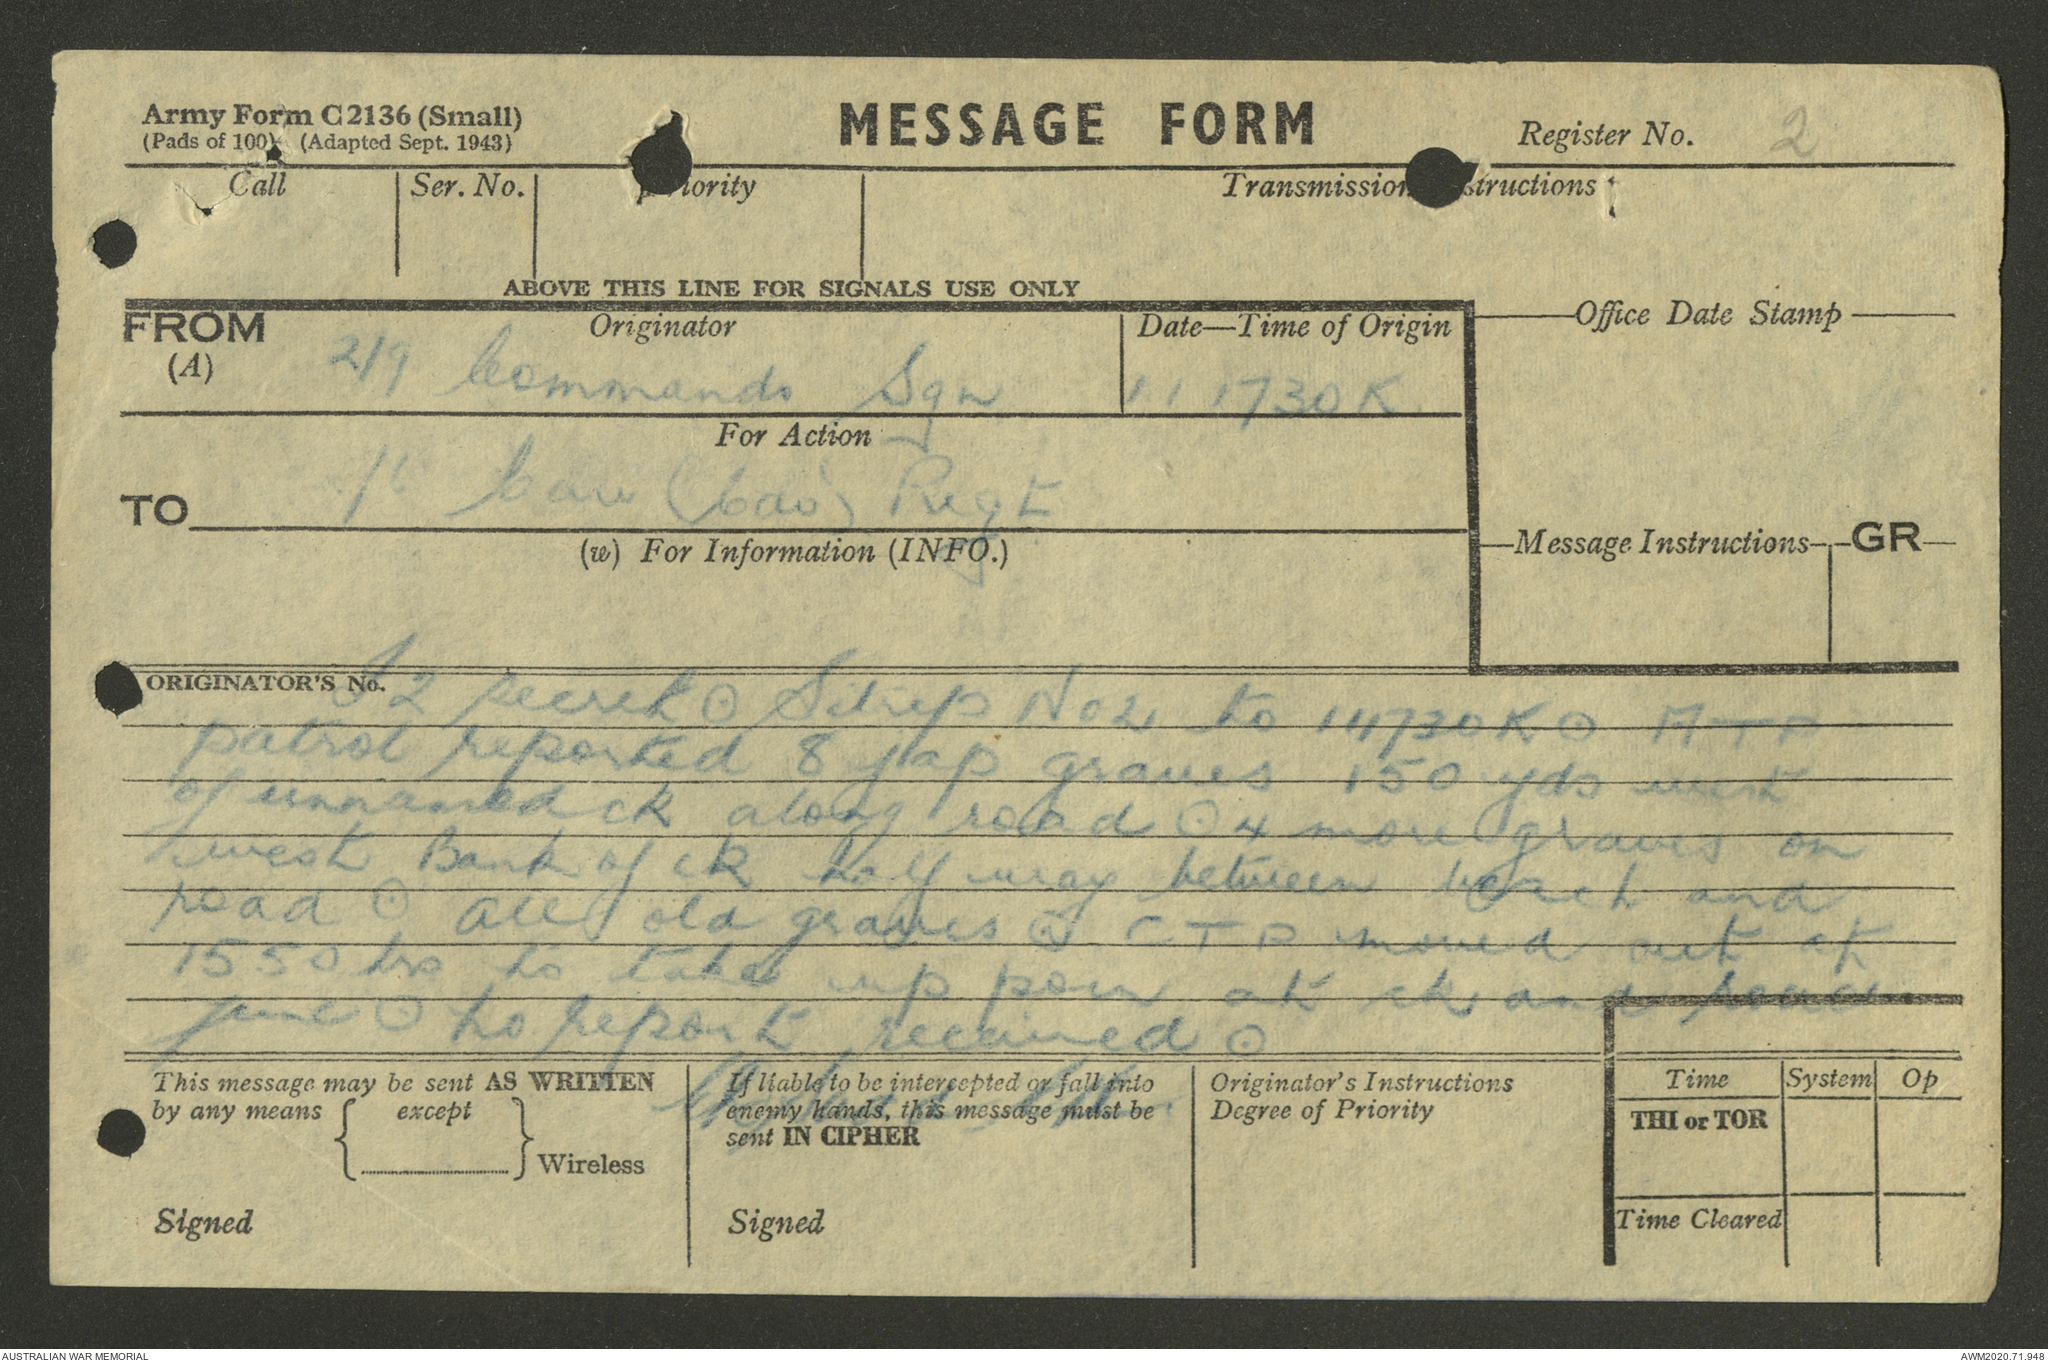 Army Form C2136 (Small)
(Pads of 100) (Adapted Sept. 1943)
MESSAGE FORM
Register No. 2
Call Ser. No. Priority Transmission Instructions
ABOVE THIS LINE FOR SIGNALS USE ONLY
FROM
(A)
Originator
2/9 Commando Sqn
Date—Time of Origin
111730K
Office Date Stamp
For Action
TO
Cav (Cdo) Regt
(w) For Information (INFO.)
Message Instructions GR
ORIGINATOR'S No.
I2 secret ⊙ Sitrep No 2 to 111730K ⊙ ATP
patrol reported 8 jap graves 150 yds west
of unnamed ck along road ⊙ 4 more graves on
west Bank of ck half way between beach and
road ⊙ all old graves ⊙ CTP moved out at
1550 hrs to take up posn at ck and road
junc ⊙ no report received ⊙
This message may be sent AS WRITTEN
by any means { except } Wireless
Signed
If liable to be intercepted or fall into
enemy hands, this message must be
sent IN CIPHER
Signed
Originator's Instructions
Degree of Priority
Time System Op
THI or TOR
Time Cleared
AUSTRALIAN WAR MEMORIAL
AWM2020.71.948